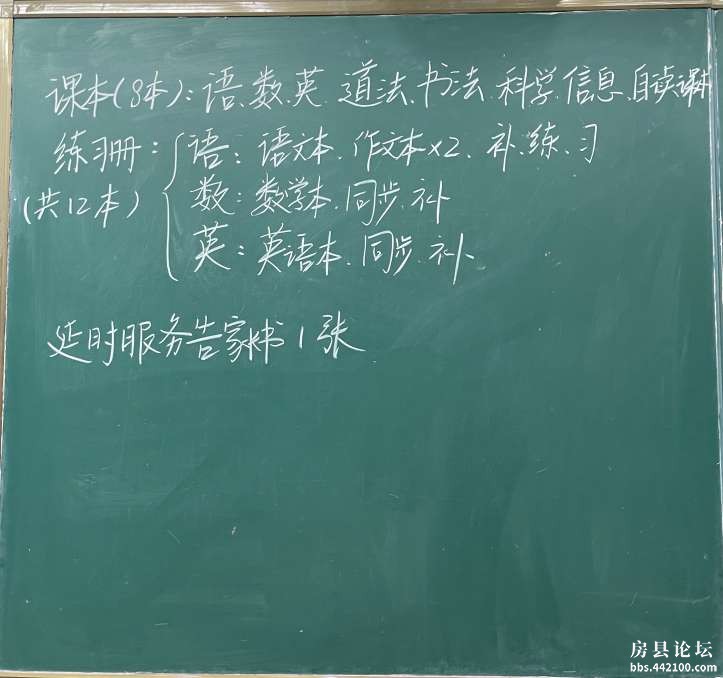 课本(8本):语、数、英、道法、书法、科学、信息、自读课本
练习册:
(共12本)
语:语文本、作文本×2、补、练、习
数:数学本、同步、补
英:英语本、同步、补、
延时服务告家长书1张
房县论坛
bbs.442100.com